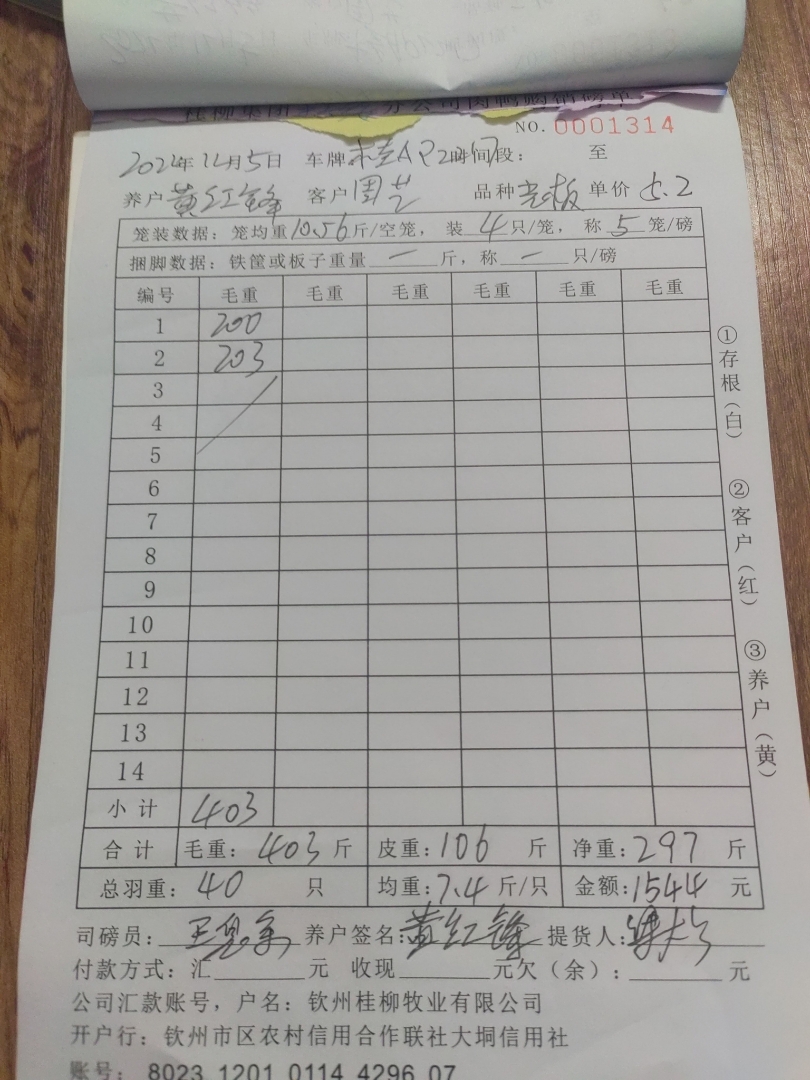 桂柳集团 分公司肉鸭购销磅单
NO. 0001314
年12月5日 车牌 桂AP 时间段： 至
养户 黄红锋 客户 周艺 品种 单价 5.2
笼装数据：笼均重10.56斤/空笼，装 4 只/笼，称 5 笼/磅
捆脚数据：铁筐或板子重量 一 斤，称 一 只/磅
编号 毛重 毛重 毛重 毛重 毛重 毛重
1 200
2 203
3
4
5
6
7
8
9
10
11
12
13
14
小计 403
合计 毛重：403斤 皮重：106 斤 净重：297 斤
总羽重：40 只 均重：7.4斤/只 金额：1544 元
司磅员： 养户签名：黄红锋 提货人：
付款方式：汇 元 收现 元欠（余）： 元
公司汇款账号，户名：钦州桂柳牧业有限公司
开户行：钦州市区农村信用合作联社大垌信用社
账号： 8023 1201 0114 4296 07
①存根（白）
②客户（红）
③养户（黄）